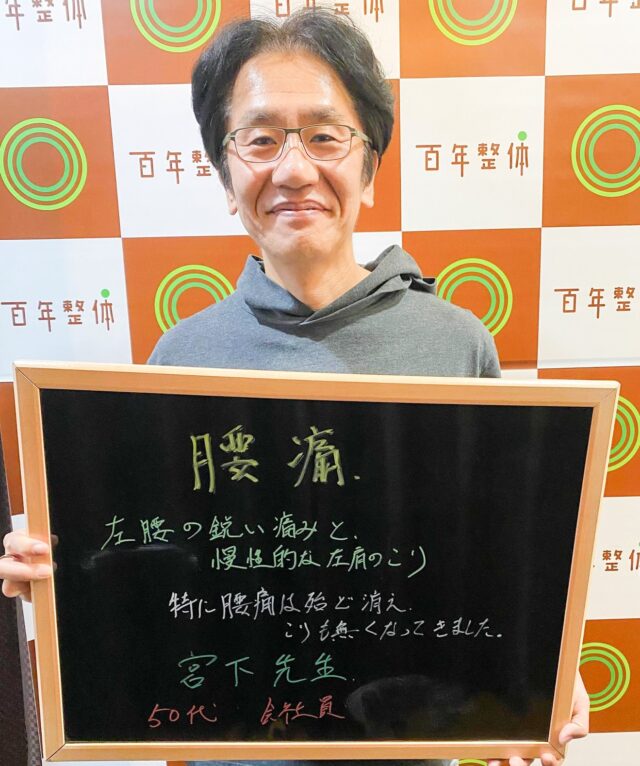 百年整体
百年整体
百年整体
百年整体
百年整体
腰痛.
左腰の鋭い痛みと、
慢性的な左肩のこり
特に腰痛は殆ど消え、
こりも無くなってきました。
宮下先生.
50代 会社員